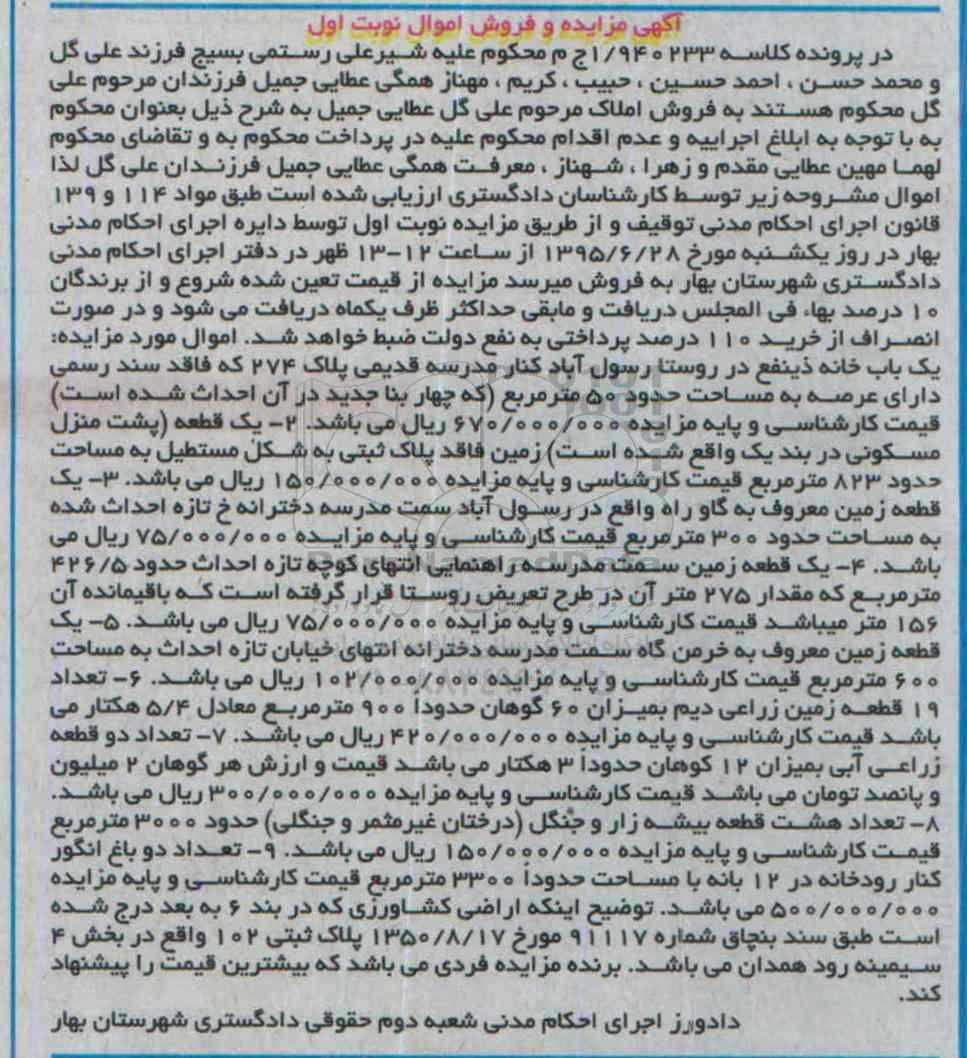 آگهی مزایده و فروش اموال نوبت اول
در پرونده کلاسه ۱/۹۴۰۲۳۳ج م محکوم علیه شیرعلی رستمی بسیج فرزند علی گل
و محمد حسن ، احمد حسین ، حبیب ، کریم ، مهناز همگی عطایی جمیل فرزندان مرحوم علی
گل محکوم هستند به فروش املاک مرحوم علی گل عطایی جمیل به شرح ذیل بعنوان محکوم
به با توجه به ابلاغ اجراییه و عدم اقدام محکوم علیه در پرداخت محکوم به و تقاضای محکوم
لهما مهین عطایی مقدم و زهرا ، شهناز ، معرفت همگی عطایی جمیل فرزندان علی گل لذا
اموال مشروحه زیر توسط کارشناسان دادگستری ارزیابی شده است طبق مواد ۱۱۴ و ۱۳۹
قانون اجرای احکام مدنی توقیف و از طریق مزایده نوبت اول توسط دایره اجرای احکام مدنی
بهار در روز یکشنبه مورخ ۱۳۹۵/۶/۲۸ از ساعت ۱۲-۱۳ ظهر در دفتر اجرای احکام مدنی
دادگستری شهرستان بهار به فروش میرسد مزایده از قیمت تعین شده شروع و از برندگان
۱۰ درصد بهاء فی المجلس دریافت و مابقی حداکثر ظرف یکماه دریافت می شود و در صورت
انصراف از خرید ۱۱۰ درصد پرداختی به نفع دولت ضبط خواهد شد. اموال مورد مزایده:
یک باب خانه ذینفع در روستا رسول آباد کنار مدرسه قدیمی پلاک ۲۷۴ که فاقد سند رسمی
دارای عرصه به مساحت حدود ۵۰ مترمربع (که چهار بنا جدید در آن احداث شده است)
قیمت کارشناسی و پایه مزایده ۶۷۰/۰۰۰/۰۰۰ ریال می باشد. ۲- یک قطعه (پشت منزل
مسکونی در بند یک واقع شده است) زمین فاقد پلاک ثبتی به شکل مستطیل به مساحت
حدود ۸۲۳ مترمربع قیمت کارشناسی و پایه مزایده ۱۵۰/۰۰۰/۰۰۰ ریال می باشد. ۳- یک
قطعه زمین معروف به گاو راه واقع در رسول آباد سمت مدرسه دخترانه خ تازه احداث شده
به مساحت حدود ۳۰۰ مترمربع قیمت کارشناسی و پایه مزایده ۷۵/۰۰۰/۰۰۰ ریال می
باشد. ۴- یک قطعه زمین سمت مدرسه راهنمایی انتهای کوچه تازه احداث حدود ۴۲۶/۵
مترمربع که مقدار ۲۷۵ متر آن در طرح تعریض روستا قرار گرفته است که باقیمانده آن
۱۵۶ متر میباشد قیمت کارشناسی و پایه مزایده ۷۵/۰۰۰/۰۰۰ ریال می باشد. ۵- یک
قطعه زمین معروف به خرمن گاه سمت مدرسه دخترانه انتهای خیابان تازه احداث به مساحت
۶۰۰ مترمربع قیمت کارشناسی و پایه مزایده ۱۰۲/۰۰۰/۰۰۰ ریال می باشد. ۶- تعداد
۱۹ قطعه زمین زراعی دیم بمیزان ۶۰ گوهان حدوداً ۹۰۰ مترمربع معادل ۵/۴ هکتار می
باشد قیمت کارشناسی و پایه مزایده ۴۲۰/۰۰۰/۰۰۰ ریال می باشد. ۷- تعداد دو قطعه
زراعی آبی بمیزان ۱۲ کوهان حدوداً ۳ هکتار می باشد قیمت و ارزش هر گوهان ۲ میلیون
و پانصد تومان می باشد قیمت کارشناسی و پایه مزایده ۳۰۰/۰۰۰/۰۰۰ ریال می باشد.
۸- تعداد هشت قطعه بیشه زار و جنگل (درختان غیرمثمر و جنگلی) حدود ۳۰۰۰ مترمربع
قیمت کارشناسی و پایه مزایده ۱۵۰/۰۰۰/۰۰۰ ریال می باشد. ۹- تعداد دو باغ انگور
کنار رودخانه در ۱۲ بانه با مساحت حدوداً ۳۳۰۰ مترمربع قیمت کارشناسی و پایه مزایده
۵۰۰/۰۰۰/۰۰۰ می باشد. توضیح اینکه اراضی کشاورزی که در بند ۶ به بعد درج شده
است طبق سند بنچاق شماره ۹۱۱۱۷ مورخ ۱۳۵۰/۸/۱۷ پلاک ثبتی ۱۰۲ واقع در بخش ۴
سیمینه رود همدان می باشد. برنده مزایده فردی می باشد که بیشترین قیمت را پیشنهاد
کند.
دادورز اجرای احکام مدنی شعبه دوم حقوقی دادگستری شهرستان بهار